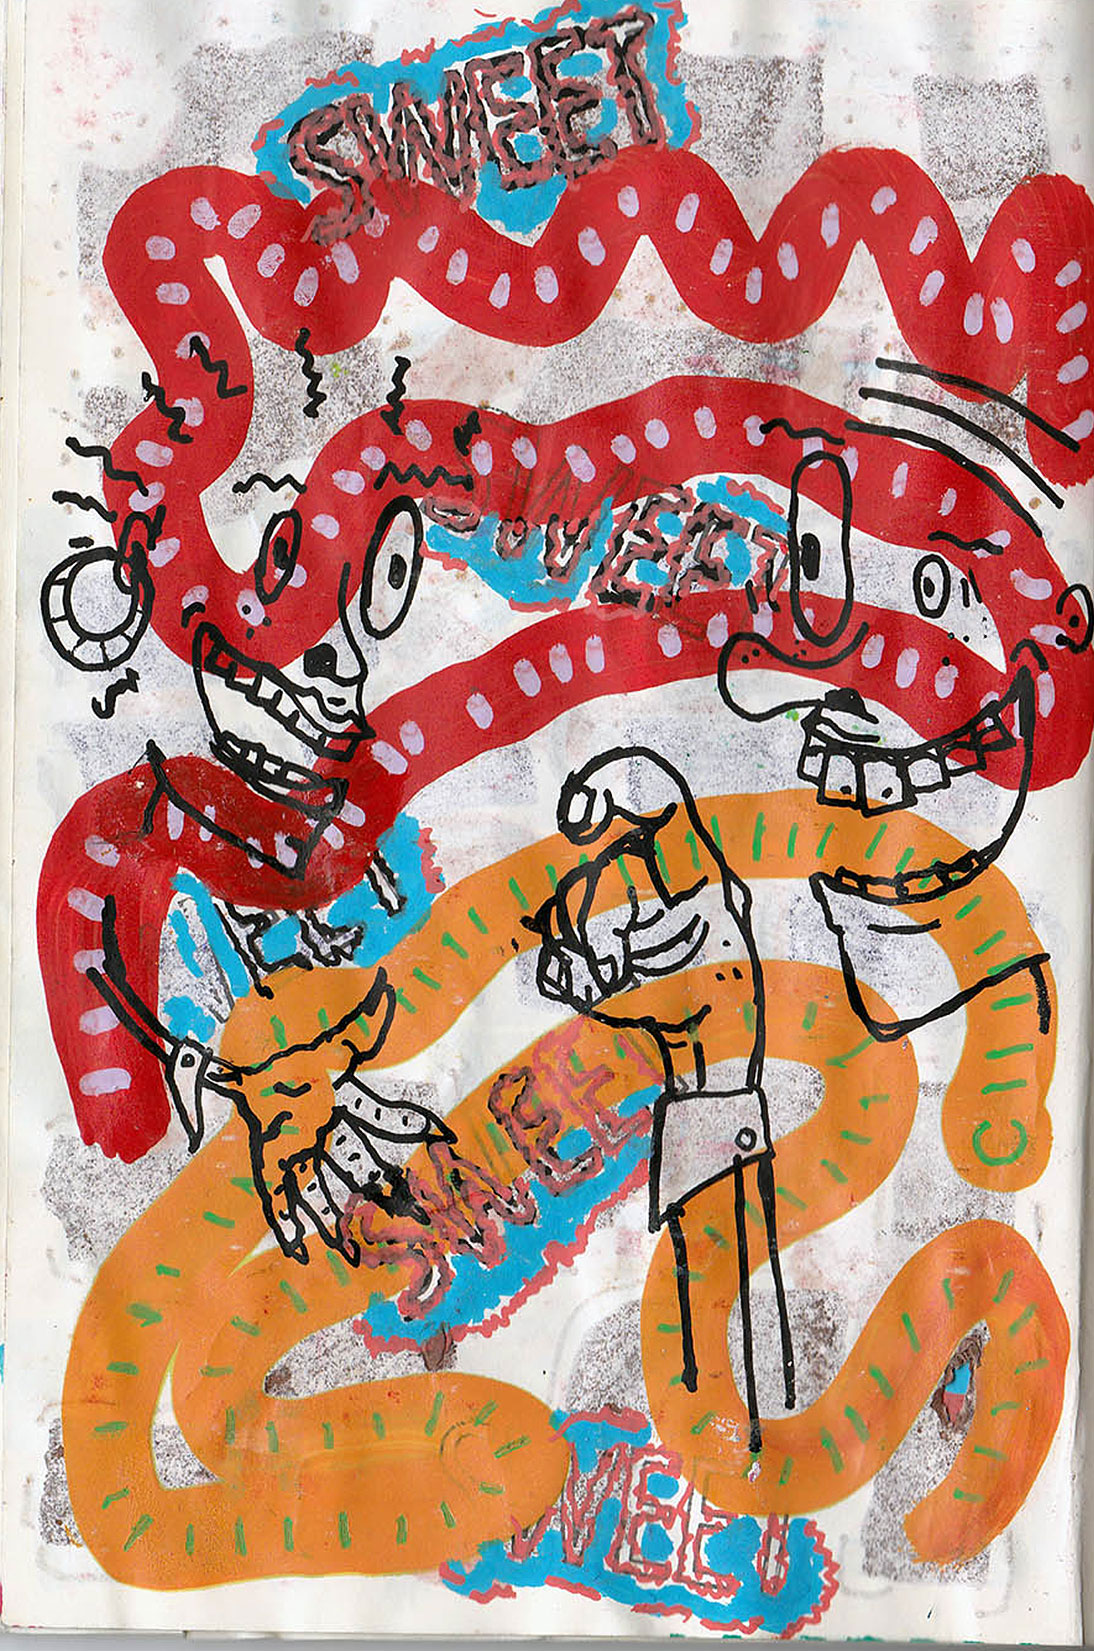 SWEET
SWEET
SWEET
WEET